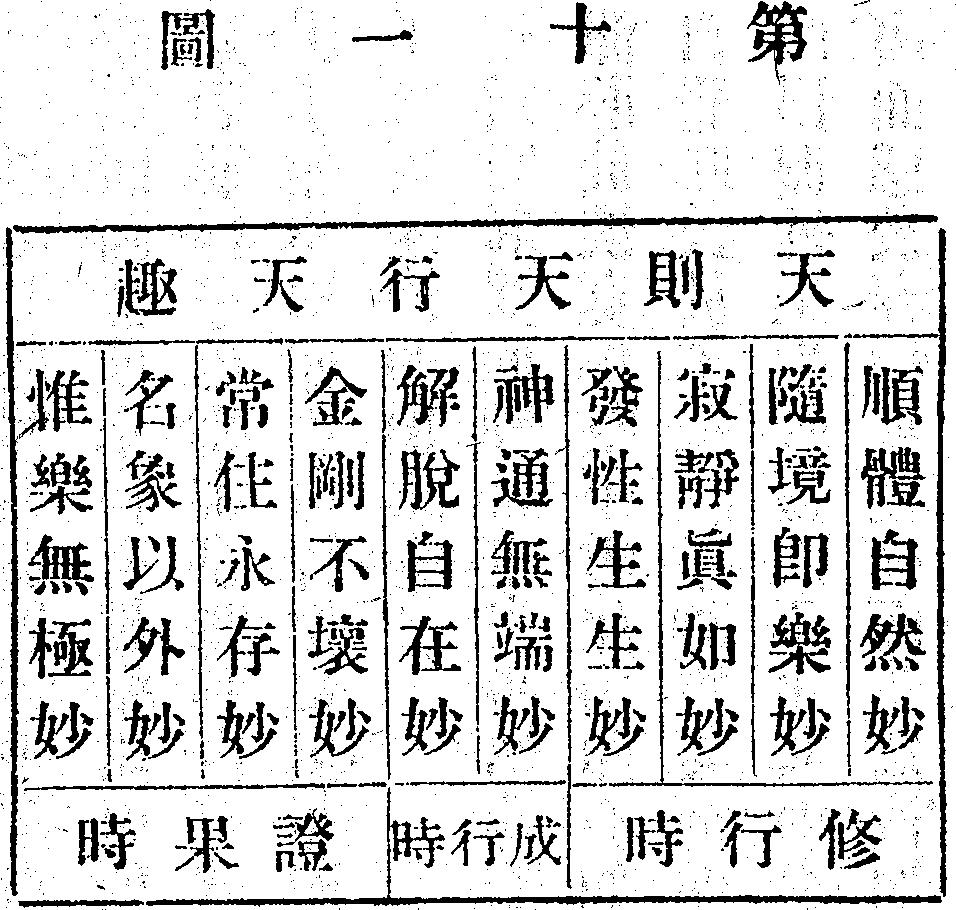 第十一圖
天則天行天趣
順體自然妙
隨境卽樂妙
寂靜眞如妙
發性生生妙
神通無端妙
解脫自在妙
金剛不壞妙
常住永存妙
名象以外妙
惟樂無極妙
修行時
成行時
證果時